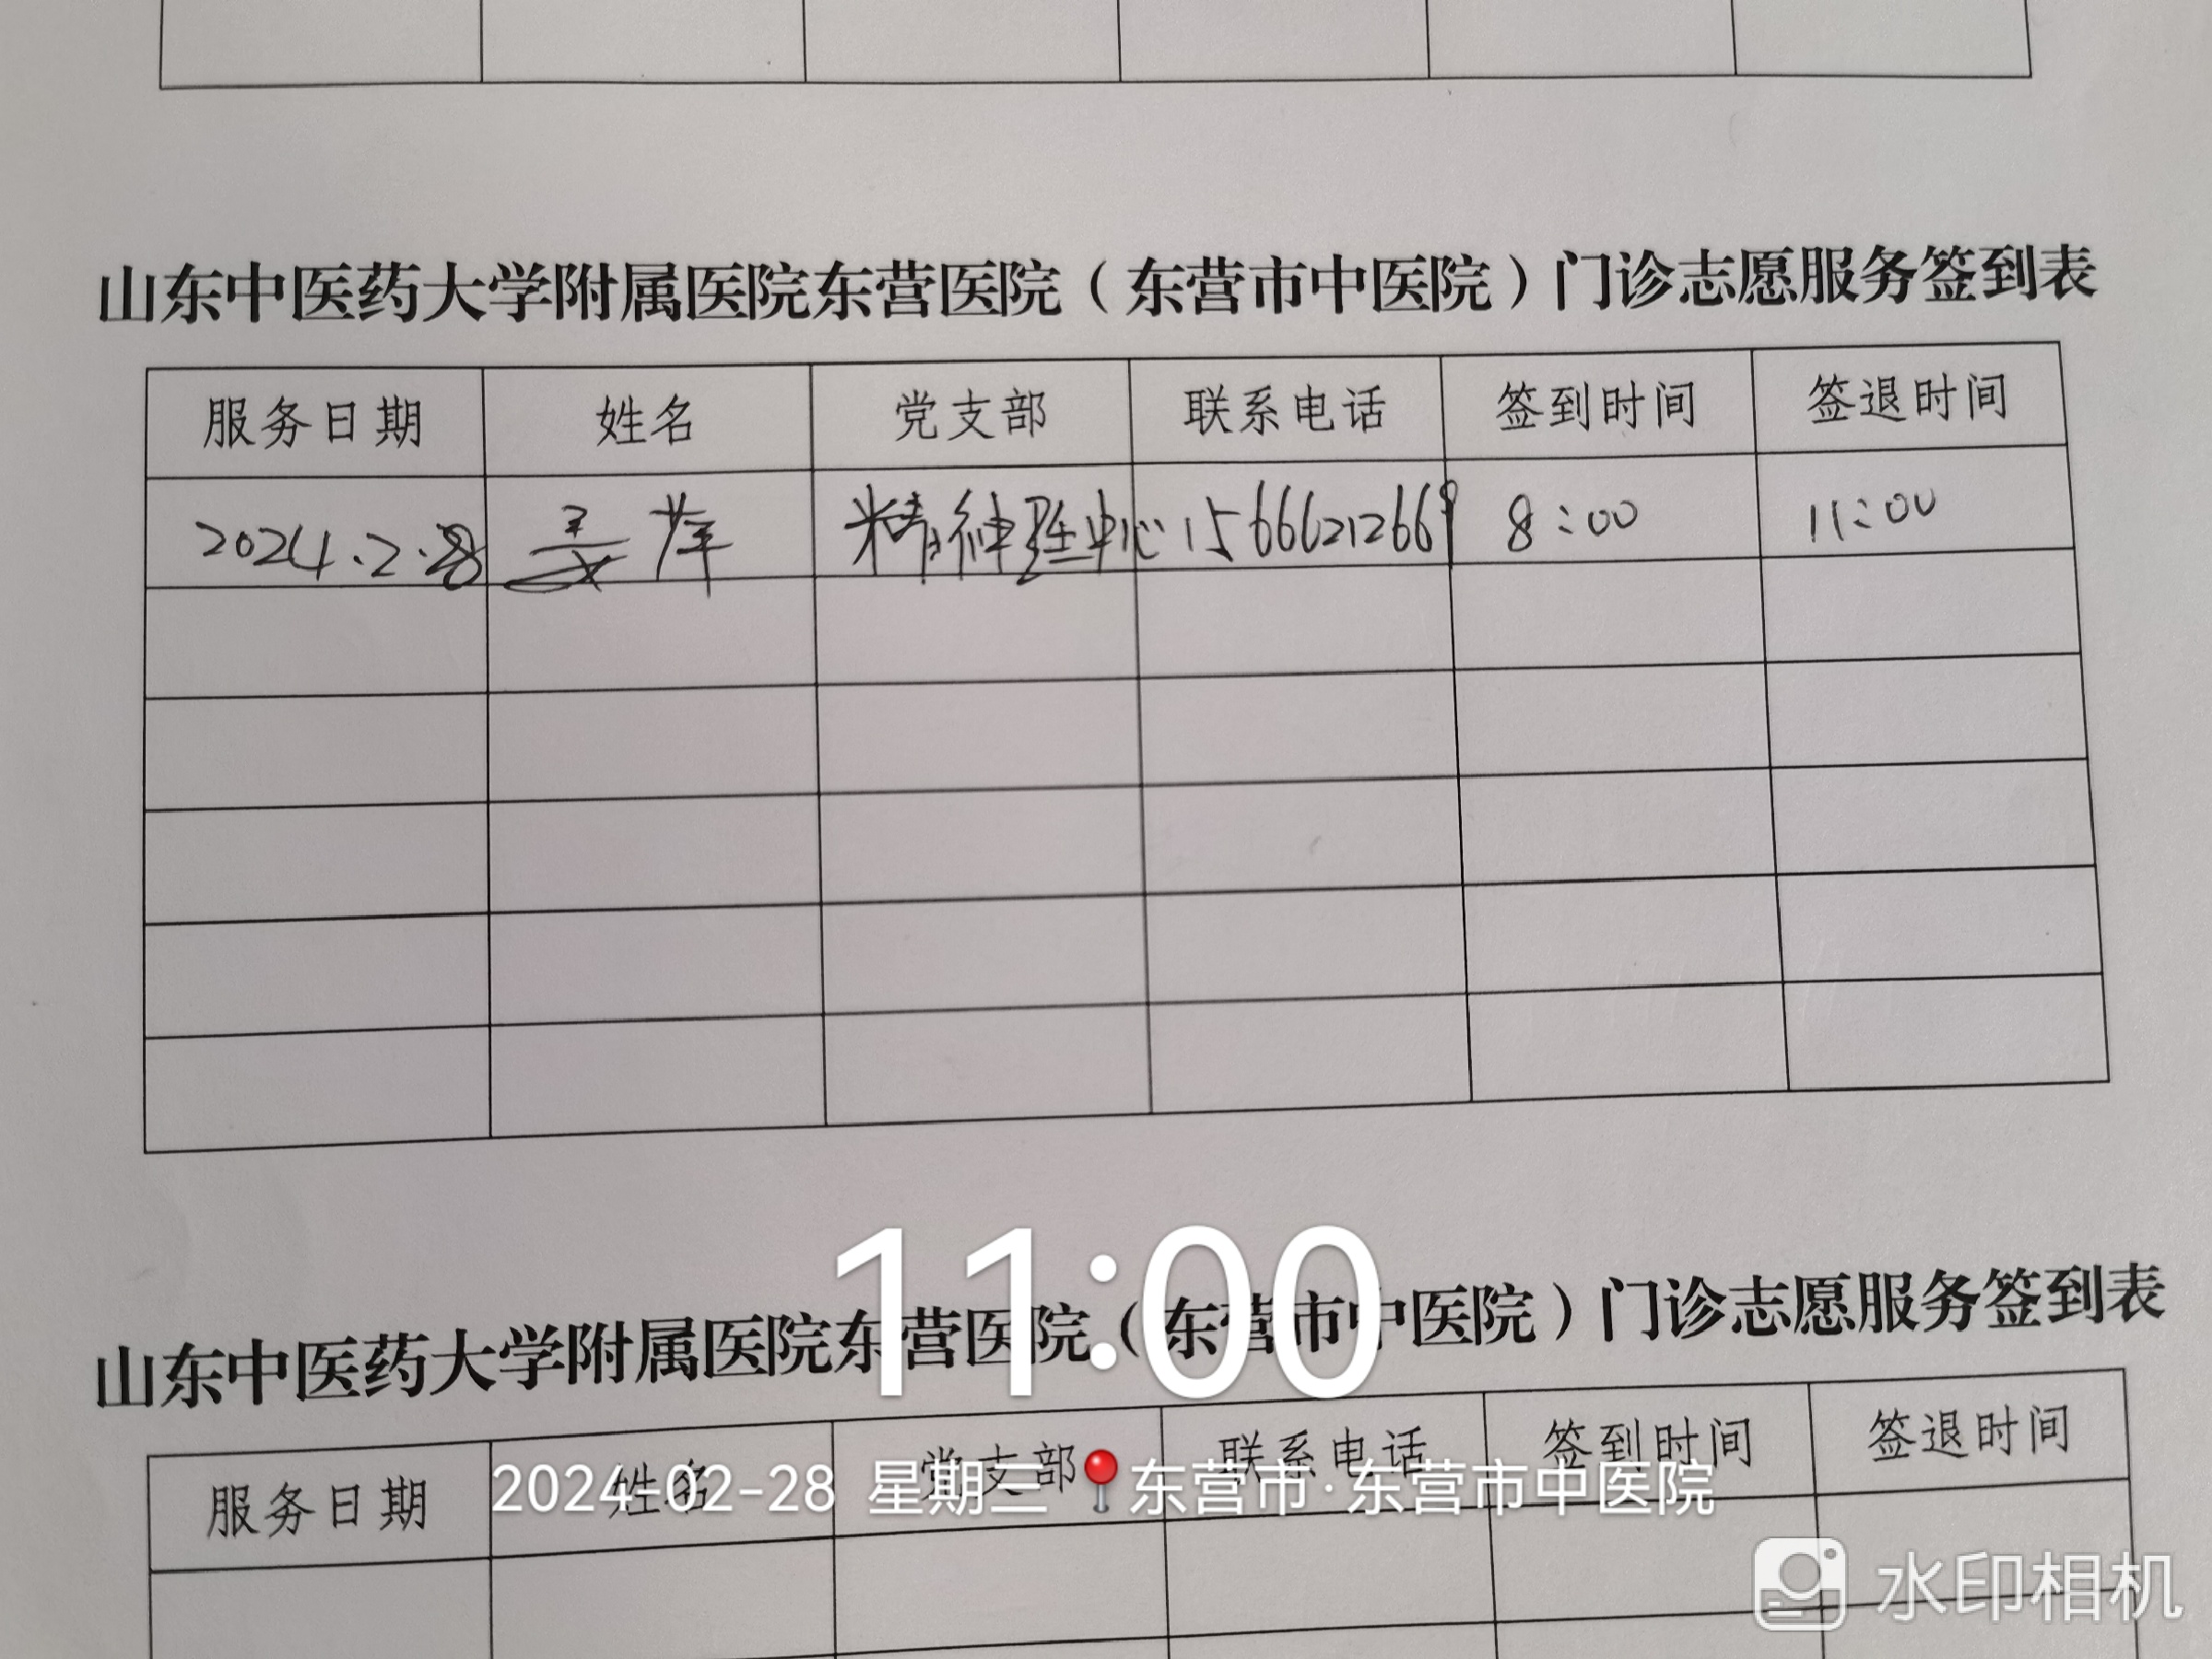 山东中医药大学附属医院东营医院（东营市中医院）门诊志愿服务签到表
服务日期 姓名 党支部 联系电话 签到时间 签退时间
2024.2.28 萍 精神 中心 15666212669 8:00 11:00
11:00
山东中医药大学附属医院东营医院（东营市中医院）门诊志愿服务签到表
服务日期 姓名 党支部 联系电话 签到时间 签退时间
2024-02-28 星期三 东营市·东营市中医院
水印相机